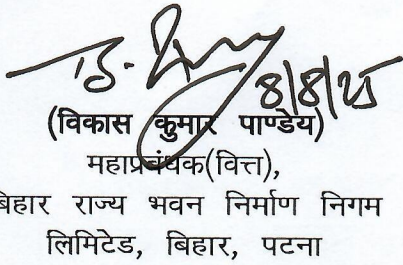 8/8/25
(विकास कुमार पाण्डेय)
महाप्रबंधक(वित्त),
बिहार राज्य भवन निर्माण निगम
लिमिटेड, बिहार, पटना